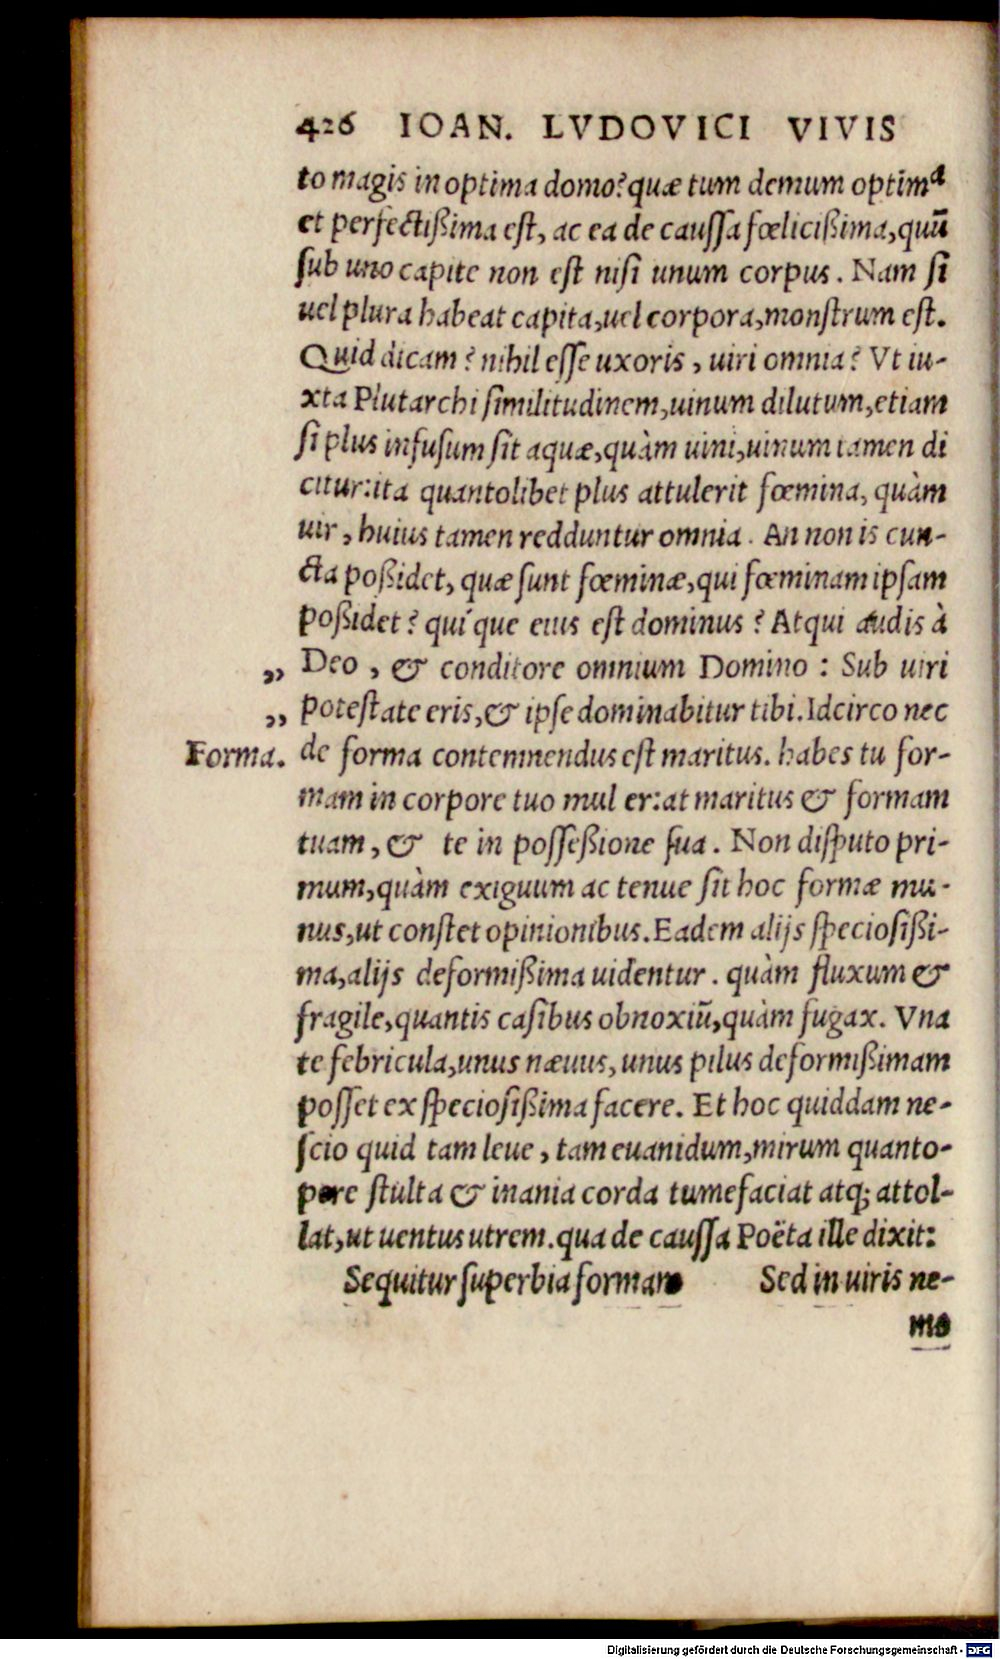 426 IOAN. LVDOVICI VIVIS
to magis in optima domo? quæ tum demum optima
et perfectißima est, ac ea de caussa fœlicißima, quũ
sub uno capite non est nisi unum corpus. Nam si
uel plura habeat capita, uel corpora, monstrum est.
Quid dicam? nihil esse uxoris, uiri omnia? Vt iu-
xta Plutarchi similitudinem, uinum dilutum, etiam
si plus infusum sit aquæ, quàm uini, uinum tamen di
citur: ita quantolibet plus attulerit fœmina, quàm
uir, huius tamen redduntur omnia. An non is cun-
cta poßidet, quæ sunt fœminæ, qui fœminam ipsam
poßidet? qui'que eius est dominus? Atqui audis à
„ Deo, & conditore omnium Domino: Sub uiri
„ potestate eris, & ipse dominabitur tibi. Idcirco nec
Forma. de forma contemnendus est maritus. habes tu for-
mam in corpore tuo mul er: at maritus & formam
tuam, & te in posseßione sua. Non disputo pri-
mum, quàm exiguum ac tenue sit hoc formæ mu-
nus, ut constet opinionibus. Eadem alijs speciosißi-
ma, alijs deformißima uidentur. quàm fluxum &
fragile, quantis casibus obnoxiũ, quàm fugax. Vna
te febricula, unus næuus, unus pilus deformißimam
posset ex speciosißima facere. Et hoc quiddam ne-
scio quid tam leue, tam euanidum, mirum quanto-
pere stulta & inania corda tumefaciat atq; attol-
lat, ut uentus utrem. qua de caussa Poëta ille dixit:
Sequitur superbia formam Sed in uiris ne-
mo
Digitalisierung gefördert durch die Deutsche Forschungsgemeinschaft - DFG